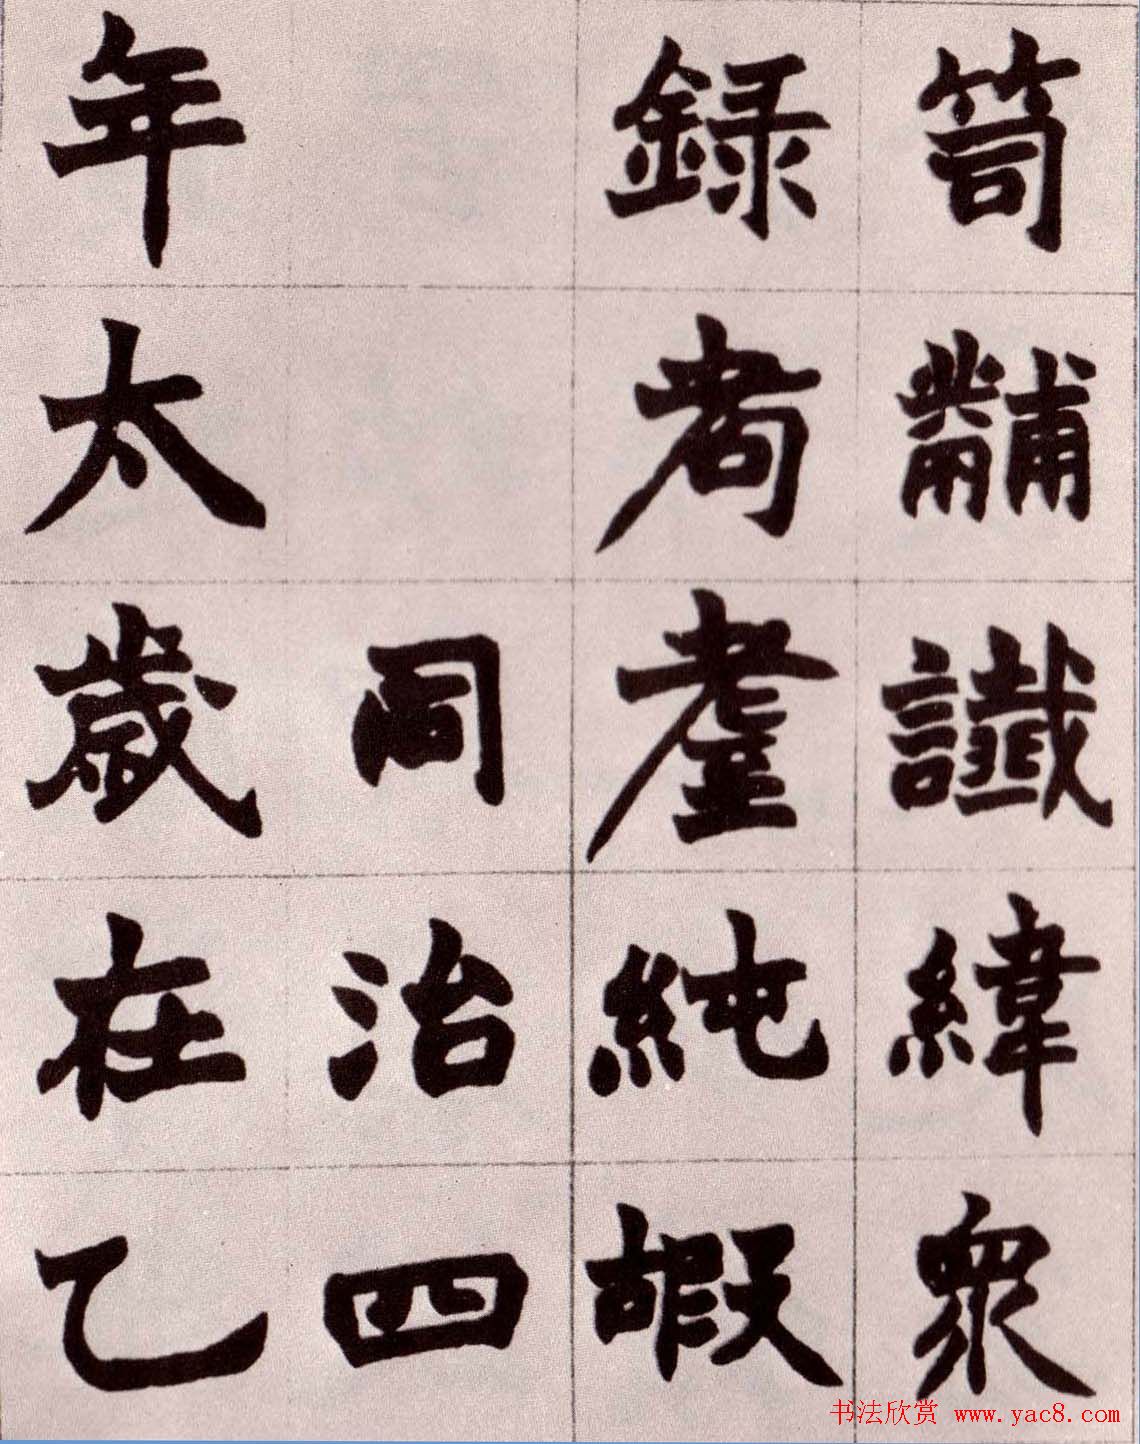 笥黼讖緯眾
録耇耋純嘏
同治四
年太歲在乙
书法欣赏 www.yac8.com